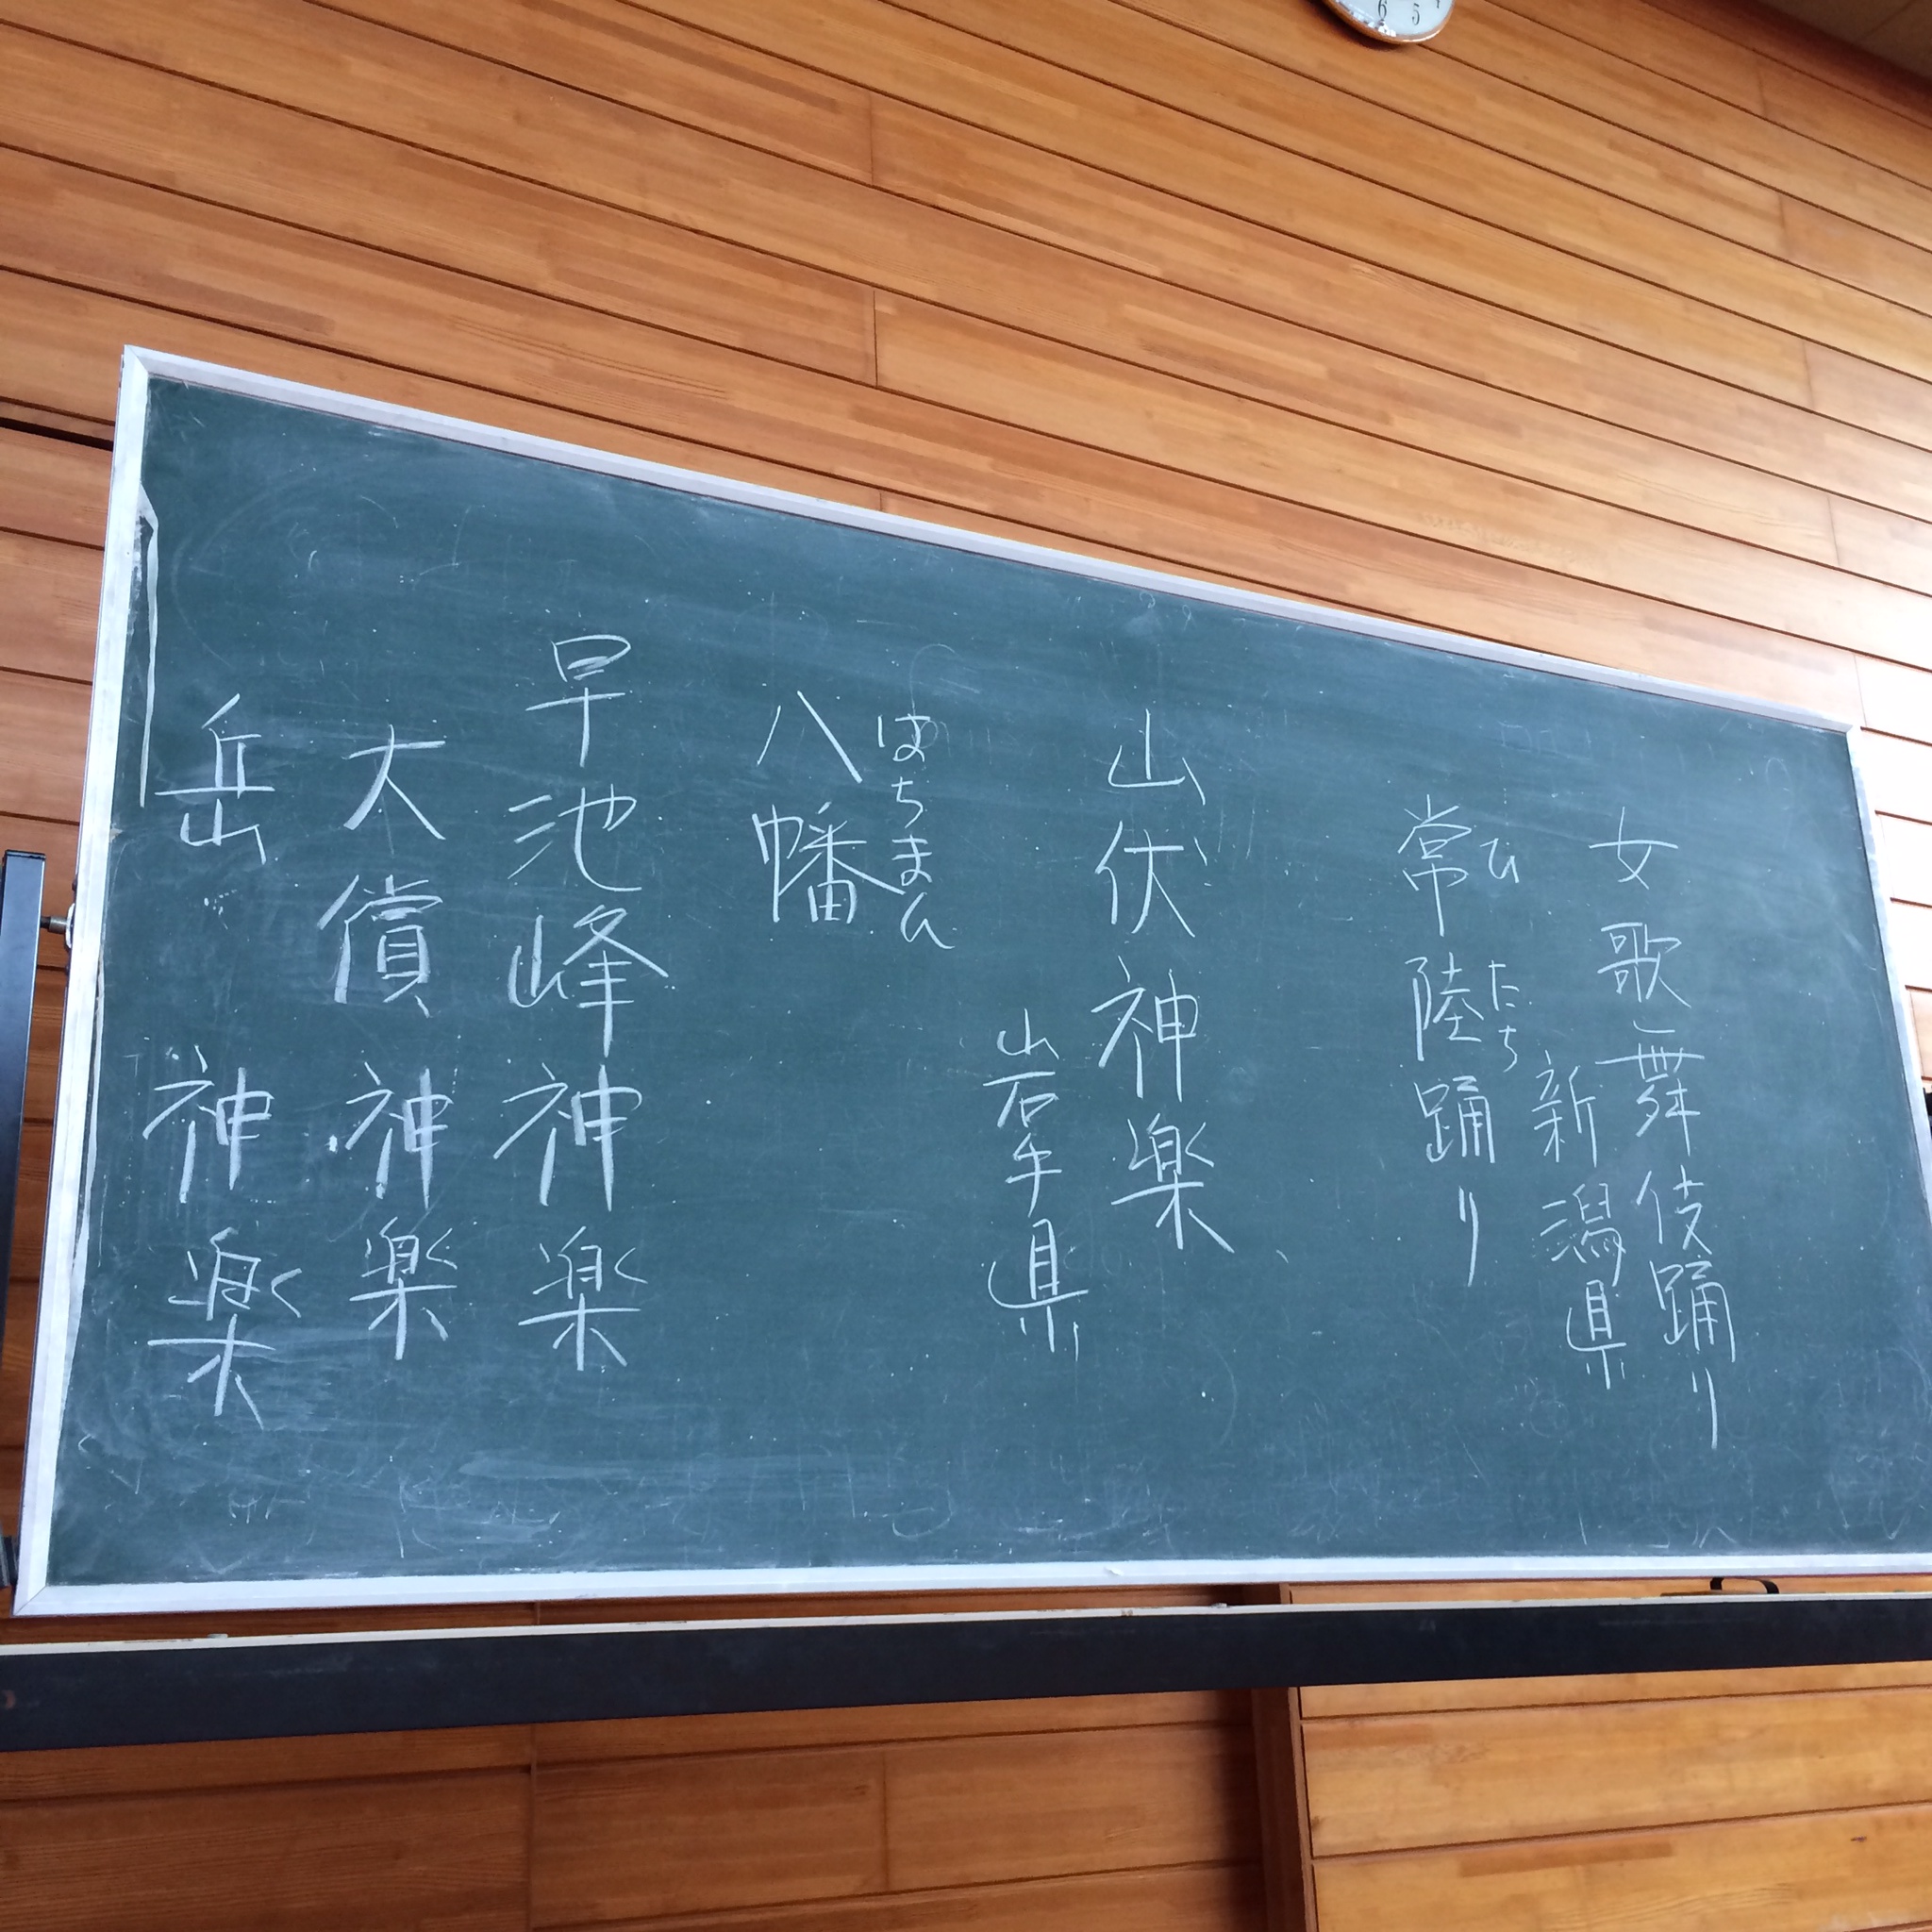 女歌舞伎踊り
新潟県
ひたち
常陸踊り
山伏神楽
岩手県
はちまん
八幡
早池峰神楽
大償神楽
岳神楽
6 5